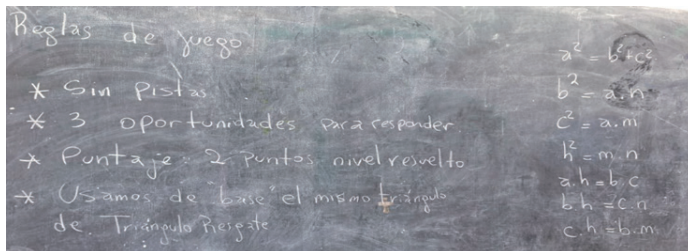 Reglas de juego
* Sin Pistas
* 3 oportunidades para responder
* Puntaje: 2 Puntos nivel resuelto
* Usamos de "base" el mismo triángulo
de Triángulo Resgate
a² = b²+c²
b² = a.n
c² = a.m
h² = m.n
a.h = b.c
b.h = c.n
c.h = b.m